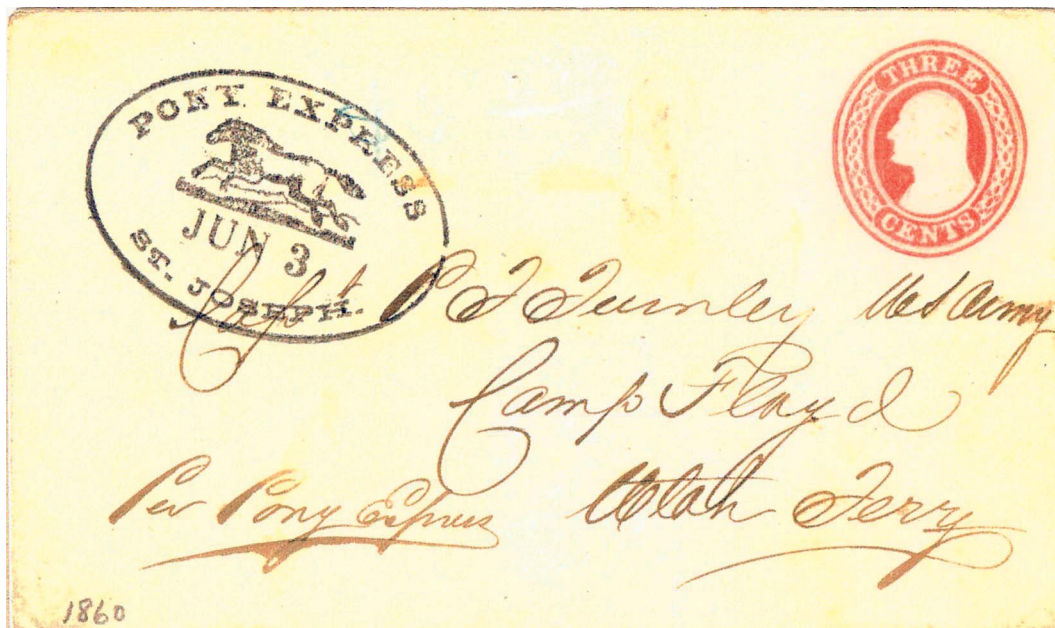 PONY EXPRESS
JUN 3
ST. JOSEPH.
THREE
CENTS
Capt P T Turnley U S Army
Camp Floyd
Utah Terry
Per Pony Express
1860